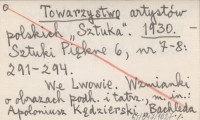 Towarzystwo artystów
polskich „Sztuka". 1930.
Sztuki Piękne 6, nr 7-8:
291-294.
We Lwowie. Wzmianki
o obrazach podh. i tatrz. m. in.:
Apoloniusz Kędzierski, Bachleda